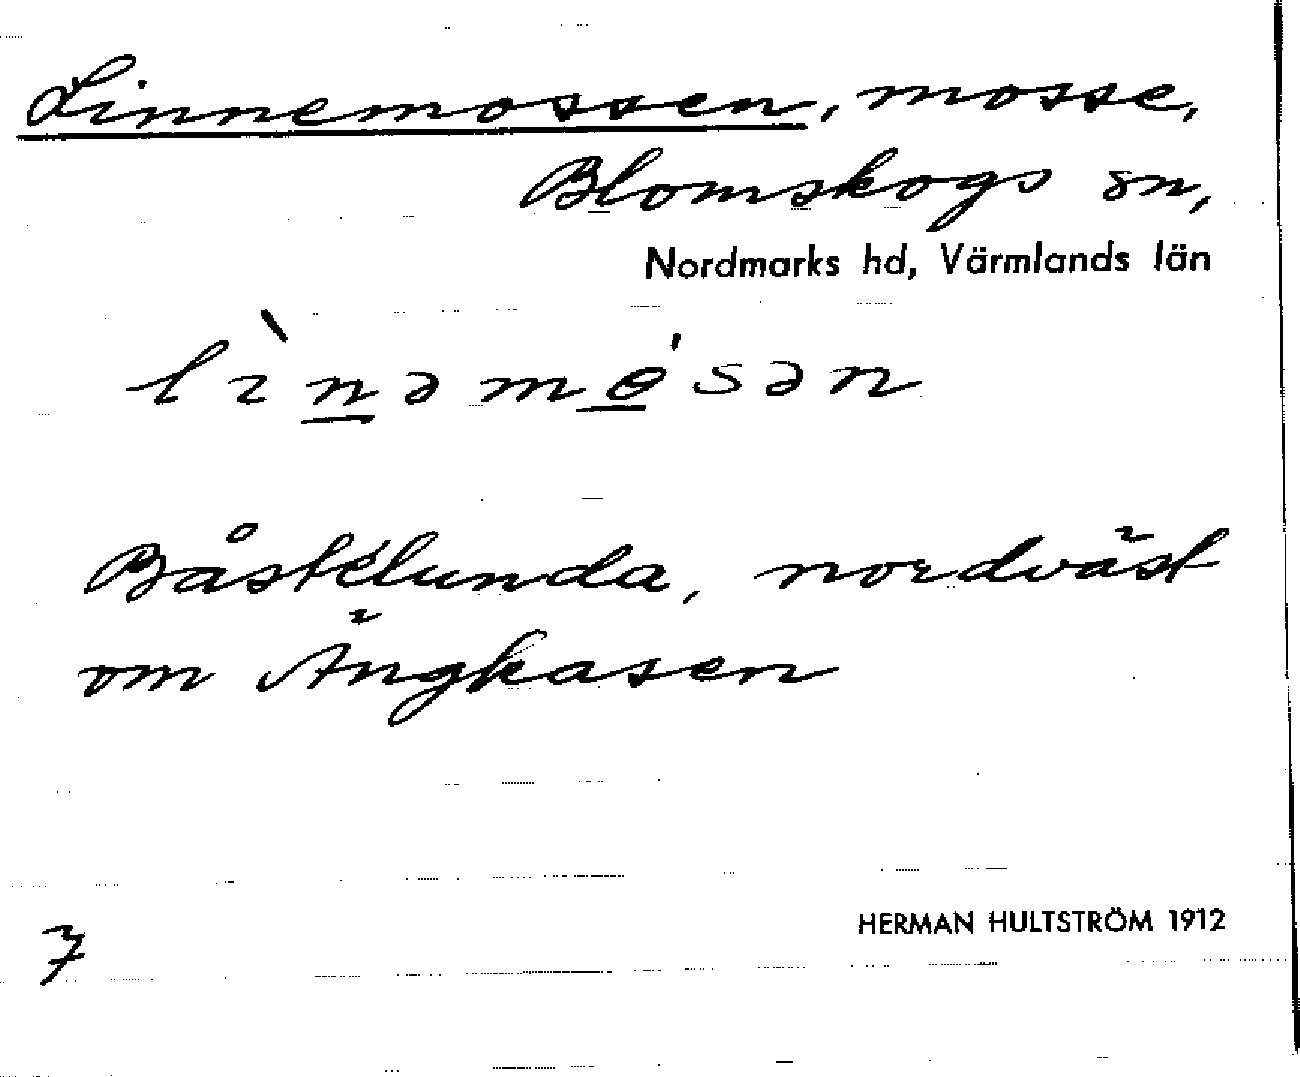 Linnemossen, mosse,
Blomskogs sn,
Nordmarks hd, Värmlands län
lìnəmɵ́sən
Båstelunda, nordväst
om Ängkasen
7
HERMAN HULTSTRÖM 1912